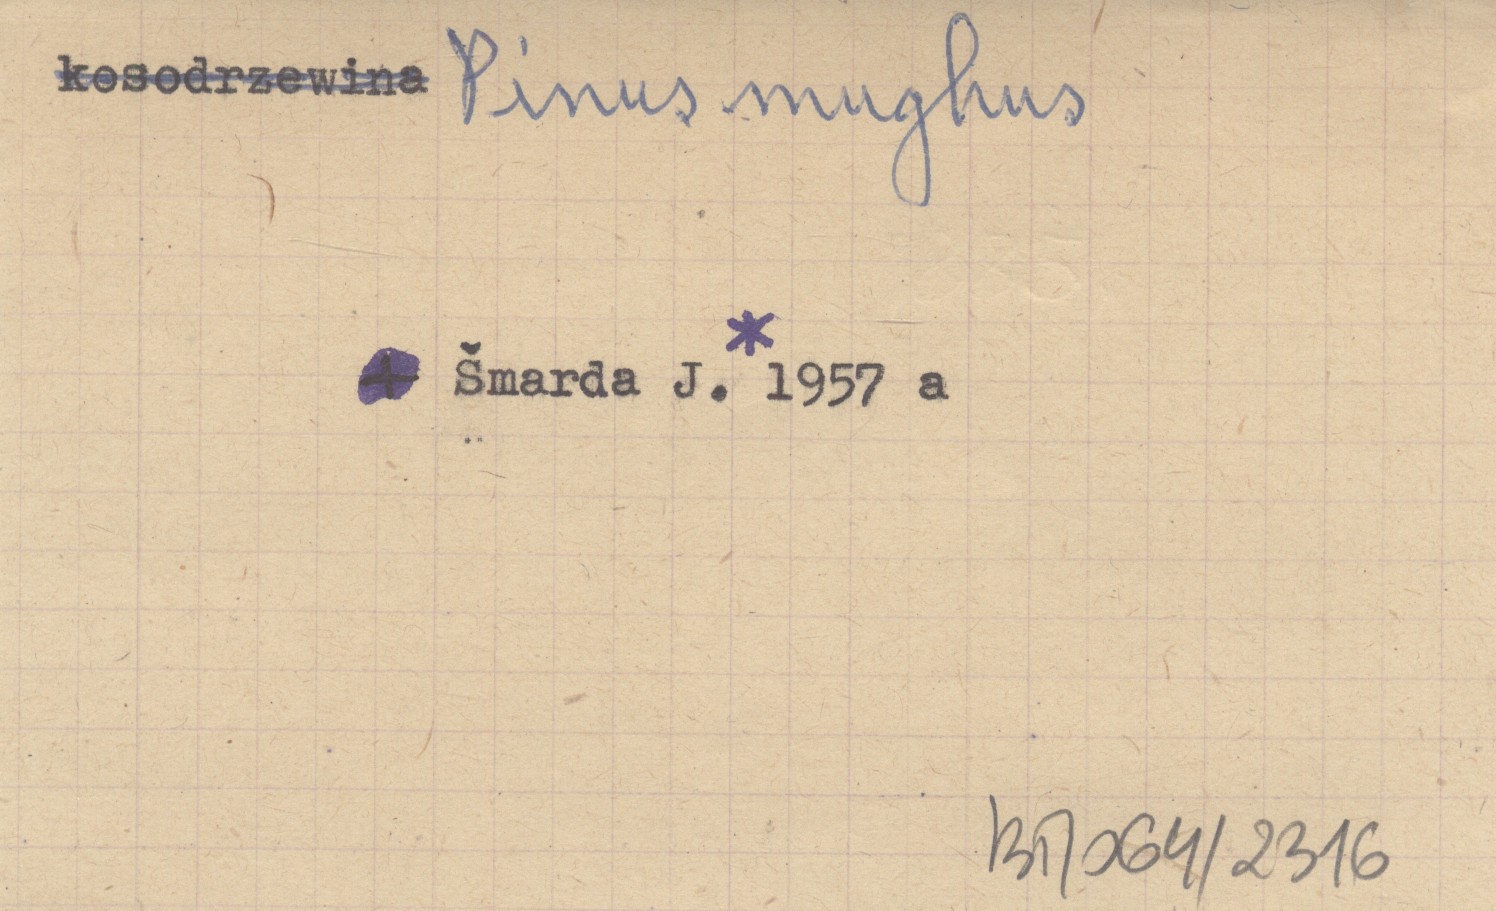 kosodrzewina Pinus mughus
+ Šmarda J.* 1957 a
064/2316